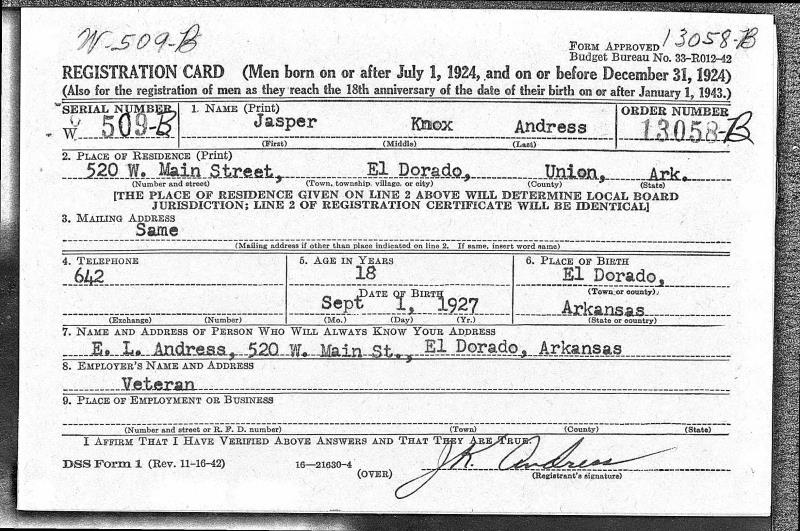 W-509-B
FORM APPROVED 13058-B
Budget Bureau No. 33-R012-42
REGISTRATION CARD (Men born on or after July 1, 1924, and on or before December 31, 1924)
(Also for the registration of men as they reach the 18th anniversary of the date of their birth on or after January 1, 1943.)
SERIAL NUMBER 1. NAME (Print) ORDER NUMBER
W 509-B Jasper Knox Andress 13058-B
(First) (Middle) (Last)
2. PLACE OF RESIDENCE (Print)
520 W. Main Street, El Dorado, Union, Ark.
(Number and street) (Town, township, village, or city) (County) (State)
[THE PLACE OF RESIDENCE GIVEN ON LINE 2 ABOVE WILL DETERMINE LOCAL BOARD
JURISDICTION; LINE 2 OF REGISTRATION CERTIFICATE WILL BE IDENTICAL]
3. MAILING ADDRESS
Same
(Mailing address if other than place indicated on line 2. If same, insert word same)
4. TELEPHONE 5. AGE IN YEARS 6. PLACE OF BIRTH
642 18 El Dorado,
DATE OF BIRTH (Town or county)
Sept 1, 1927 Arkansas
(Exchange) (Number) (Mo.) (Day) (Yr.) (State or country)
7. NAME AND ADDRESS OF PERSON WHO WILL ALWAYS KNOW YOUR ADDRESS
E. L. Andress, 520 W. Main St., El Dorado, Arkansas
8. EMPLOYER'S NAME AND ADDRESS
Veteran
9. PLACE OF EMPLOYMENT OR BUSINESS
(Number and street or R. F. D. number) (Town) (County) (State)
I AFFIRM THAT I HAVE VERIFIED ABOVE ANSWERS AND THAT THEY ARE TRUE.
DSS Form 1 (Rev. 11-16-42) 16—21630-4 J.K. Andress
(OVER) (Registrant's signature)